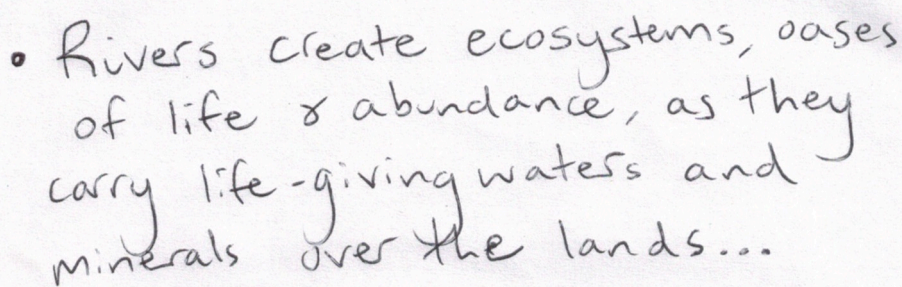 • Rivers create ecosystems, oases
of life & abundance, as they
carry life-giving waters and
minerals over the lands...